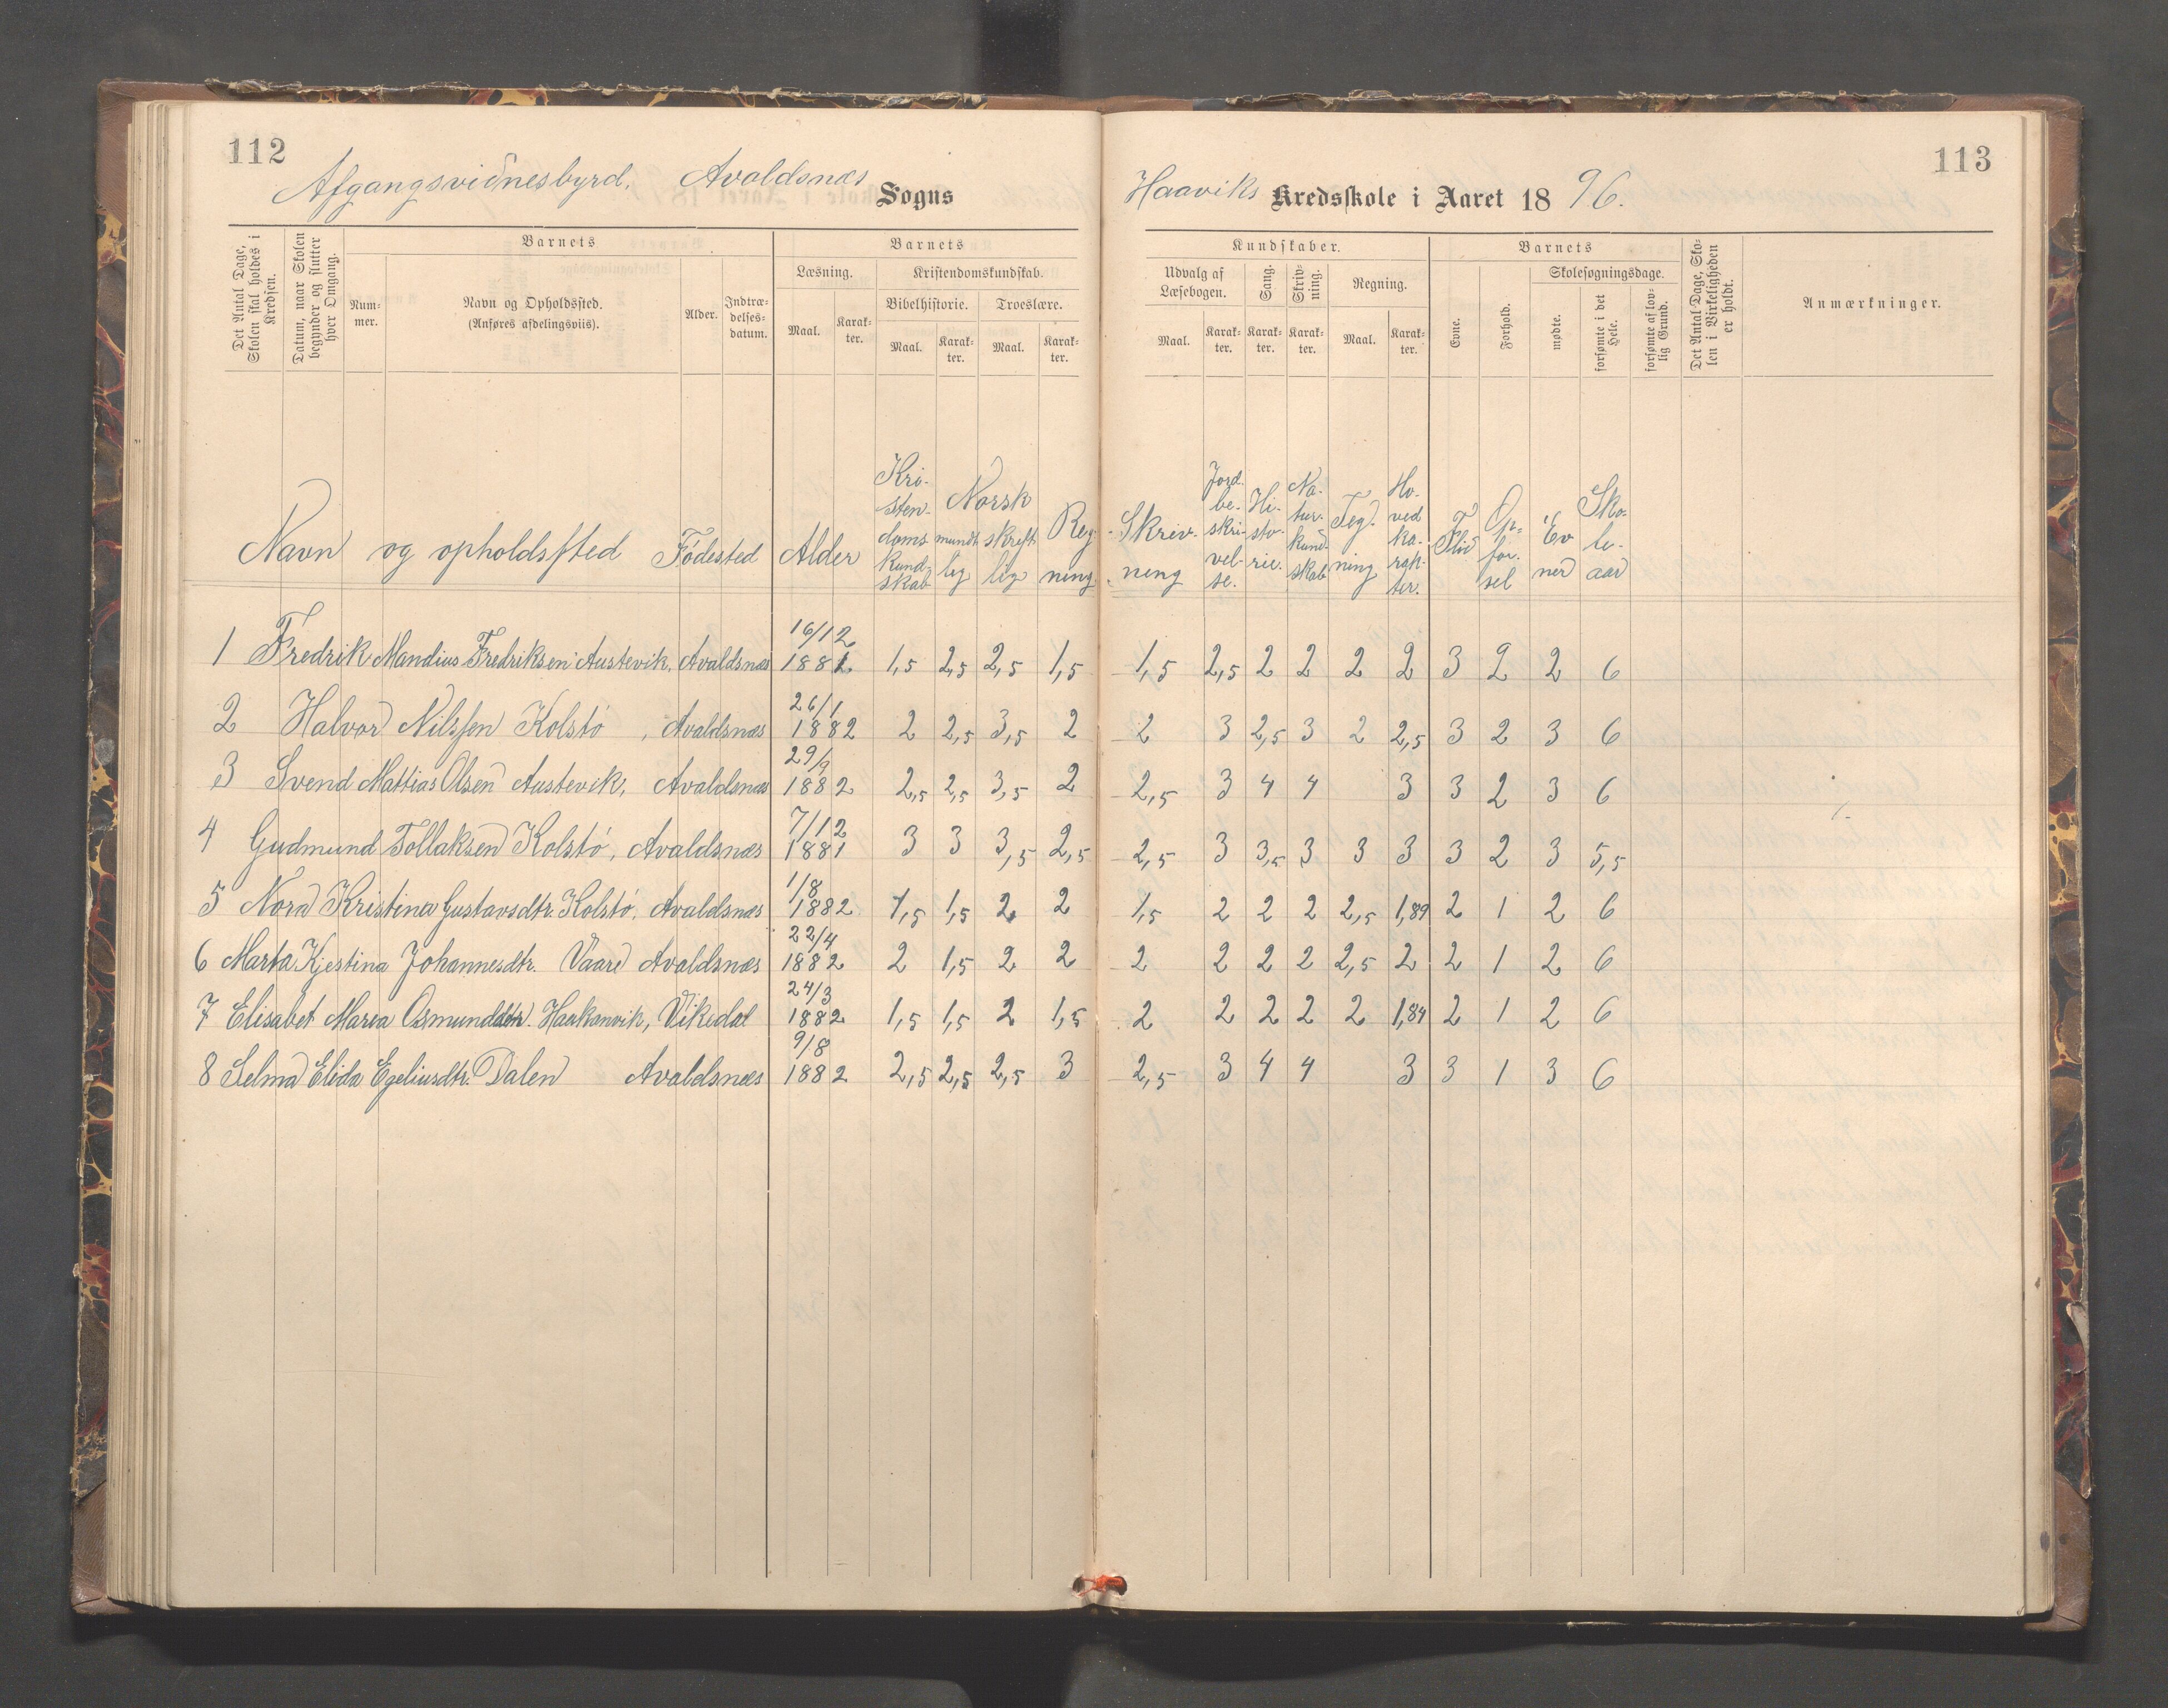 112
113
Afgangsvidnesbyrd. Avaldsnæs Sogns Haaviks Kredsskole i Aaret 1896.
Det Antal Dage, Skolen skal holdes i Kredsen.
Datum, naar Skolen begynder og slutter hver Omgang.
Barnets
Num-
mer.
Navn og Opholdssted.
(Anføres afdelingsviis).
Alder.
Indtræ-
delses-
datum.
Barnets
Læsning.
Maal.
Karak-
ter.
Kristendomskundskab.
Bibelhistorie.
Maal.
Karak-
ter.
Troeslære.
Maal.
Karak-
ter.
Kundskaber.
Udvalg af
Læsebogen.
Maal.
Karak-
ter.
Sang.
Karak-
ter.
Skriv-
ning.
Karak-
ter.
Regning.
Maal.
Karak-
ter.
Barnets
Evne.
Forhold.
Skolesøgningsdage.
mødte.
forsømte i det
Hele.
forsømte af lov-
lig Grund.
Det Antal Dage, Sko-
len i Virkeligheden
er holdt.
Anmærkninger.
Navn og opholdssted Fødested Alder
Kri-
sten-
doms
kund-
skab
Norsk
mundt
lig
skrift
lig
Reg-
ning
Skriv-
ning
Jord-
be-
skri-
vel-
se.
Hi-
sto-
rie.
Na-
tur-
kund-
skab
Teg-
ning
Ho-
ved
ka-
rak-
ter.
Flid
Op-
før-
sel
Ev
ner
Sko-
le-
aar
1 Fredrik Mandius Fredriksen Austevik, Avaldsnæs 16/12 1881 1,5 2,5 2,5 1,5 1,5 2,5 2 2 2 2 3 2 2 6
2 Halvor Nilssen Kolstø, Avaldsnæs 26/1 1882 2 2,5 3,5 2 2 3 2,5 3 2 2,5 3 2 3 6
3 Svend Mattias Olsen Austevik, Avaldsnæs 29/9 1882 2,5 2,5 3,5 2 2,5 3 4 4 3 3 2 3 6
4 Gudmund Tollaksen Kolstø, Avaldsnæs 7/12 1881 3 3 3,5 2,5 2,5 3 3,5 3 3 3 3 2 3 5,5
5 Nora Kristina Gustavsdtr. Kolstø, Avaldsnæs 1/8 1882 1,5 1,5 2 2 1,5 2 2 2 2,5 1,89 2 1 2 6
6 Marta Kjestina Johannesdtr. Vaare Avaldsnæs 22/4 1882 2 1,5 2 2 2 2 2 2 2,5 2 2 1 2 6
7 Elisabet Maria Osmunddtr. Haakonvik, Vikedal 24/3 1882 1,5 1,5 2 1,5 2 2 2 2 2 1,84 2 1 2 6
8 Selma Elida Egeliusdtr. Dalen Avaldsnæs 9/8 1882 2,5 2,5 2,5 3 2,5 3 4 4 3 3 1 3 6